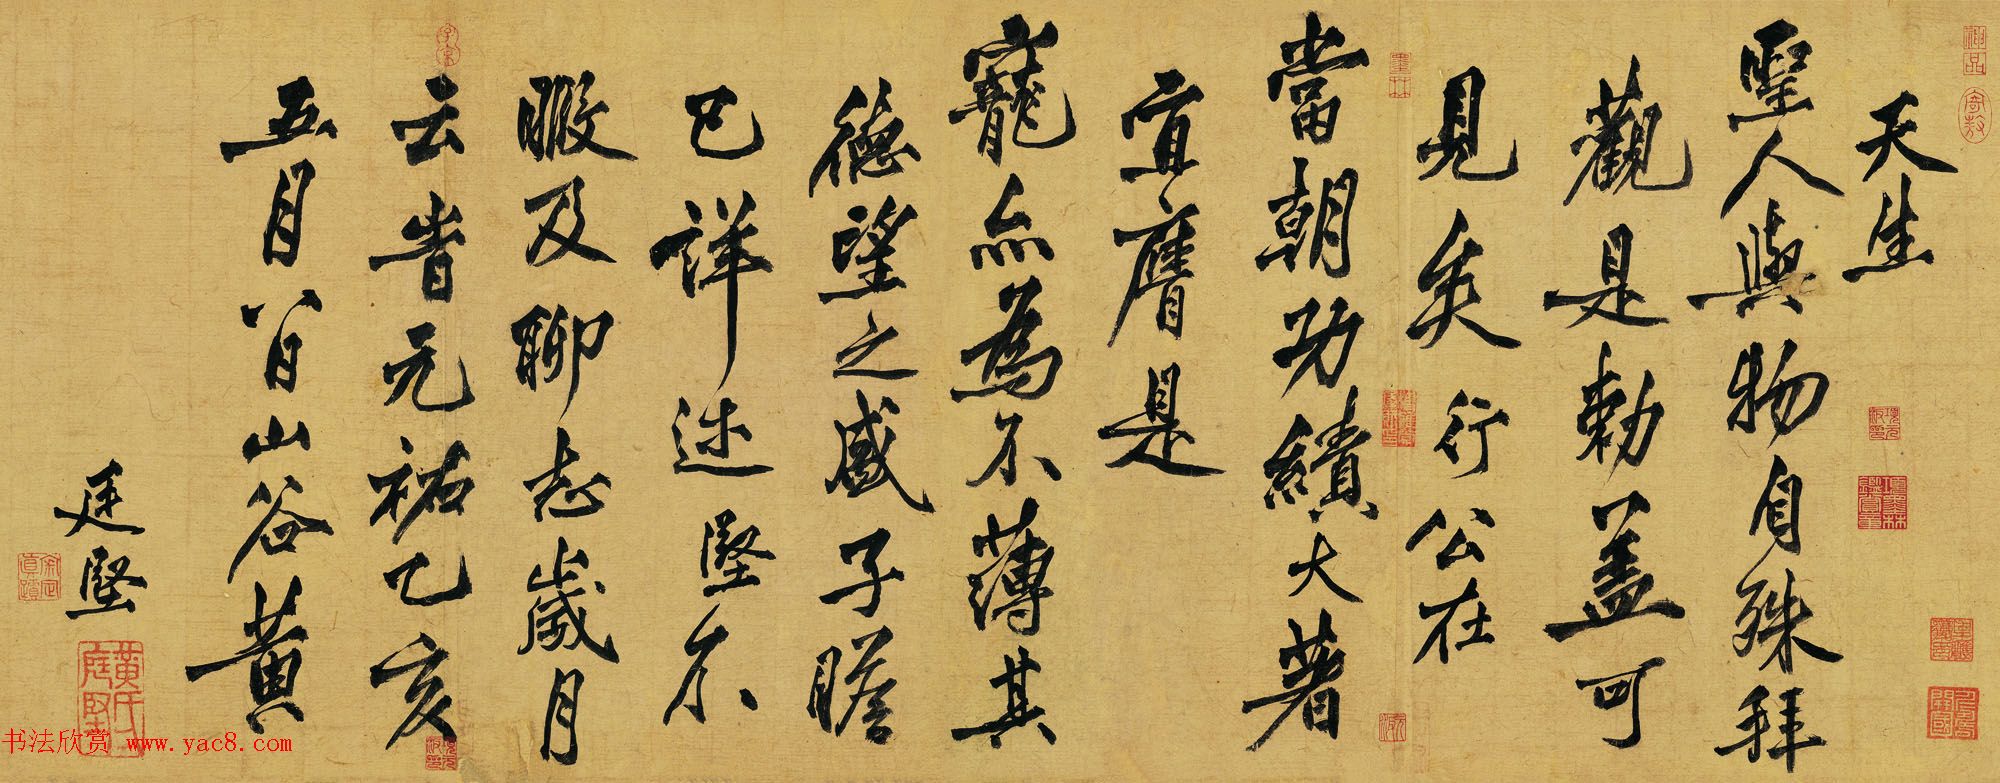 天生
聖人與物自殊拜
觀是勅蓋可
見矣行公在
當朝功績大著
宜膺是
寵亦為不薄其
德望之盛子瞻
已詳述堅不
暇及聊志歲月
云者元祐乙亥
五月八日山谷黃
庭堅
黃氏庭堅
书法欣赏 www.yac8.com